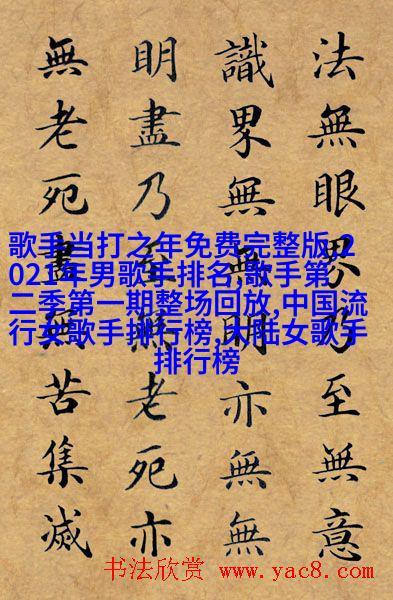 法無眼界乃至無意
識界無無明亦無無
明盡乃至無老死亦
無老死盡無苦集滅
歌手当打之年免费完整版,2
021年男歌手排名,歌手第
二季第一期整场回放,中国流
行女歌手排行榜,大陆女歌手
排行榜
书法欣赏 www.yac8.com